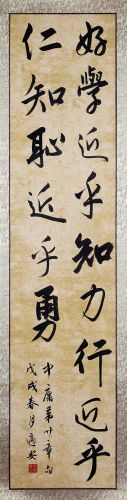 好學近乎知力行近乎
仁知恥近乎勇
中庸第廿章句
戊戌春月